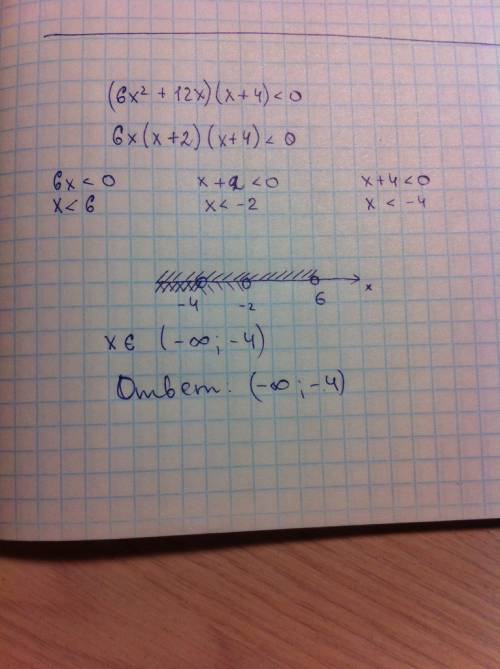 (6x² + 12x)(x+4) < 0
6x(x+2)(x+4) < 0
6x < 0 x+2 < 0 x+4 < 0
x < 6 x < -2 x < -4
-4 -2 6 x
x ∈ (-∞; -4)
Ответ: (-∞; -4)